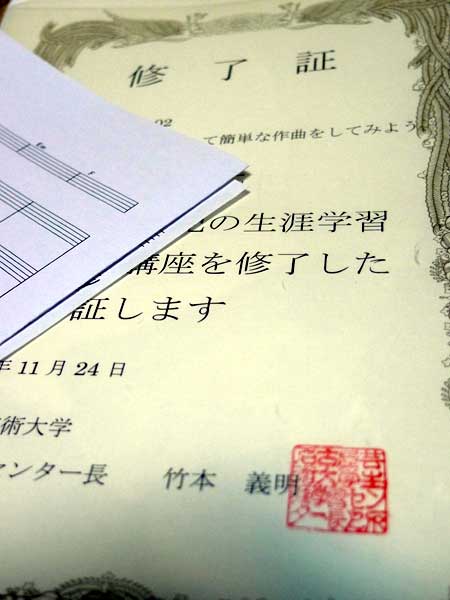 修了証
て簡単な作曲をしてみよう
の生涯学習
講座を修了した
証します
年11月24日
術大学
ンター長 竹本 義明